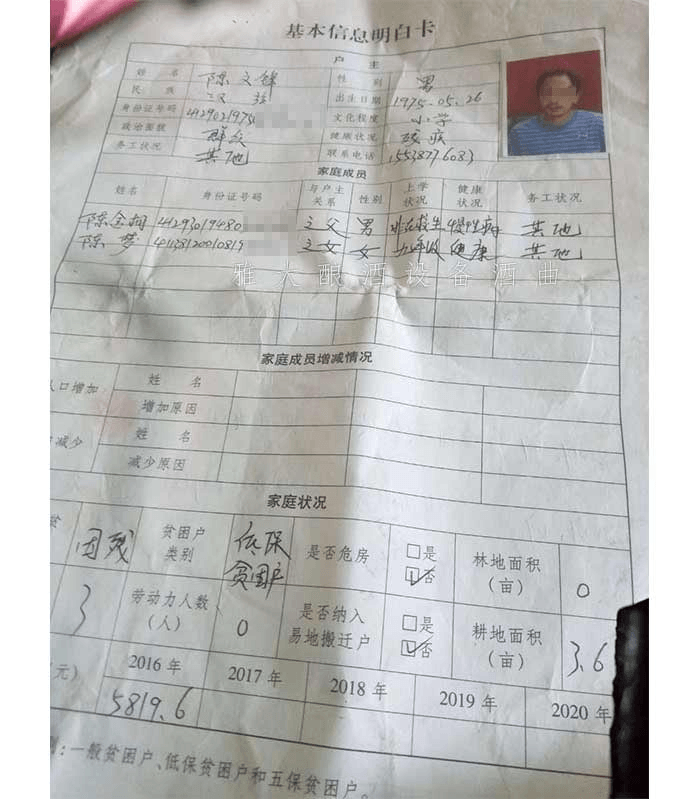 基本信息明白卡
户 主
姓 名 陈文锋 性 别 男
民 族 汉族 出生日期 1975.05.26
身份证号码 412902197505 文化程度 小学
政治面貌 群众 健康状况 残疾
务工状况 其他 联系电话 15538776083
家庭成员
姓名 身份证号码 与户主关系 性别 上学状况 健康状况 务工状况
陈金 41293019480 之父 男 非在校生 慢性病 其他
陈梦 41138120010819 之女 女 九年级 健康 其他
雅大酿酒设备酒曲
家庭成员增减情况
人口增加 姓 名
增加原因
减少 姓 名
减少原因
家庭状况
因残 贫困户类别 低保贫困户 是否危房 □是 ☑否 林地面积（亩） 0
3 劳动力人数（人） 0 是否纳入易地搬迁户 □是 ☑否 耕地面积（亩） 3.6
元） 2016年 2017年 2018年 2019年 2020年
5819.6
别:一般贫困户、低保贫困户和五保贫困户。